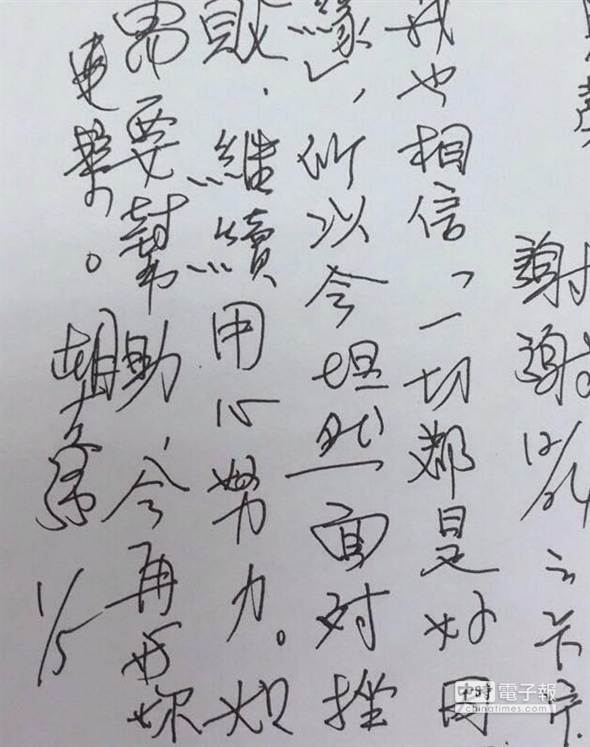 謝謝12/24之卡
我也相信「一切都是好因
緣」,所以今坦然面對挫
敗,繼續用心努力。如
需要幫助,會再與妳
連繫。胡志強 1/5
中時電子報
chinatimes.com